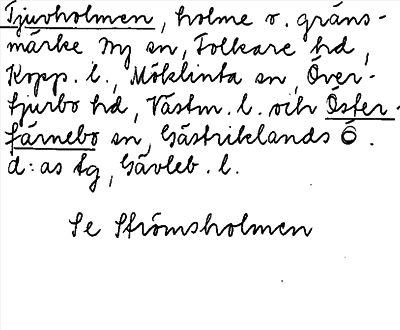 Tjuvholmen, holme o. gräns-
märke My sn, Folkare hd,
Kopp. l., Möklinta sn, Över-
tjurbo hd, Västm. l. och Öster-
färnebo sn, Gästriklands ö.
d:as tg, Gävleb. l.
Se Strömsholmen